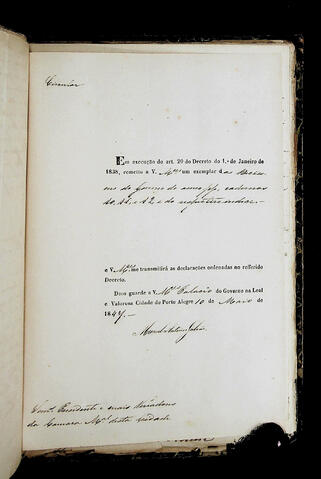 Circular
Em execução do art. 20 do Decreto do 1.º de Janeiro de
1838, remetto a V. M.ces um exemplar da
do anno pp. cadernos
10, 11, e 12 e do respectivo indice.-
e V. M.ces me transmittirá as declarações ordenadas no referido
Decreto.
Deos guarde a V. M.ces Palacio do Governo na Leal
e Valorosa Cidade de Porto Alegre 10 de Maio de
1847.-
Manoel Antonio Galvão
Snr.es Presidente e mais Vereadores
da Camara M.al desta Cidade